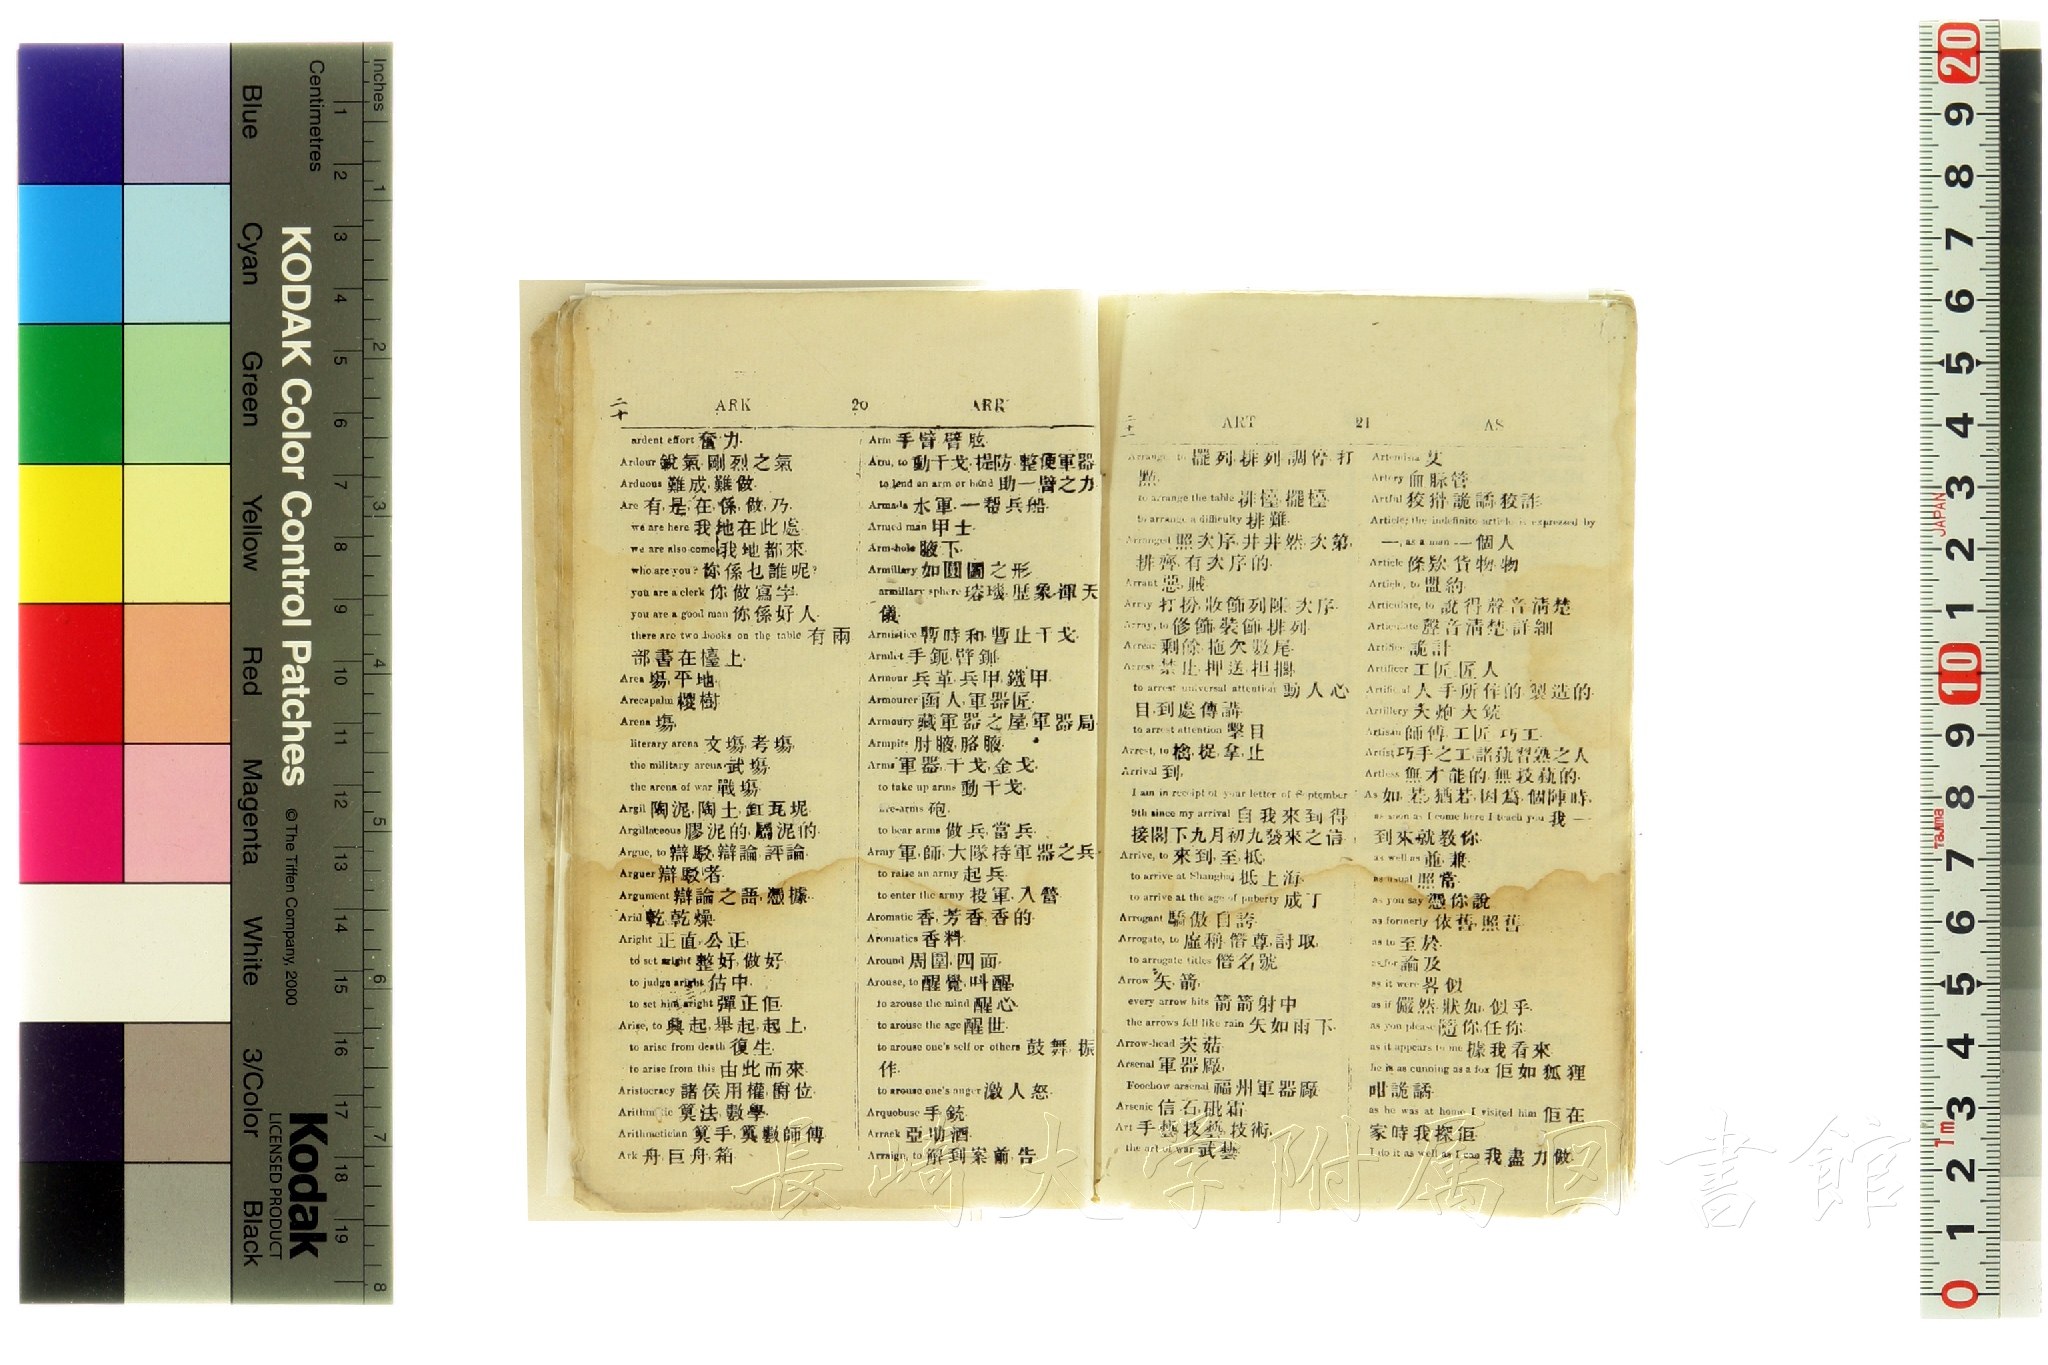 Inches
Centimetres
Blue
Cyan
Green
Yellow
Red
Magenta
White
3/Color
Black
KODAK Color Control Patches
© The Tiffen Company, 2000
Kodak
LICENSED PRODUCT
1 2 3 4 5 6 7 8 9 10 11 12 13 14 15 16 17 18 19
1 2 3 4 5 6 7 8
二十 ARK 20 ARR
ardent effort 奮力.
Ardour 銳氣,剛烈之氣
Arduous 難成,難做.
Are 有,是,在,係,做,乃.
we are here 我地在此處
we are also come 我地都來.
who are you? 你係乜誰呢?
you are a clerk 你做寫字.
you are a good man 你係好人.
there are two books on the table 有兩
部書在檯上.
Area 塲,平地.
Arecapalm 椶樹
Arena 塲.
literary arena 文塲,考塲.
the military arena 武塲.
the arena of war 戰塲.
Argil 陶泥,陶土,缸瓦坭.
Argillaceous 膠泥的,屬泥的.
Argue, to 辯駁,辯論,評論.
Arguer 辯駁者.
Argument 辯論之語,憑據.
Arid 乾,乾燥.
Aright 正直,公正.
to set aright 整好,做好.
to judge aright 估中.
to set him aright 彈正佢.
Arise, to 興起,舉起,起上.
to arise from death 復生.
to arise from this 由此而來.
Aristocracy 諸侯用權,爵位.
Arithmetic 算法,數學.
Arithmetician 算手,算數師傅
Ark 舟,巨舟,箱
Arm 手臂,臂肱.
Arm, to 動干戈,提防,整便軍器
to lend an arm or hand 助一臂之力
Armada 水軍,一幫兵船.
Armed man 甲士.
Arm-hole 腋下.
Armillary 如圈圓之形
armillary sphere 璿璣,歷象,渾天
儀.
Armistice 暫時和,暫止干戈.
Armlet 手鈪,臂釧.
Armour 兵革,兵甲,鐵甲.
Armourer 函人,軍器匠.
Armoury 藏軍器之屋,軍器局
Armpits 肘腋,胳腋.
Arms 軍器,干戈,金戈.
to take up arms 動干戈.
fire-arms 砲.
to bear arms 做兵,當兵.
Army 軍,師,大隊持軍器之兵
to raise an army 起兵.
to enter the army 投軍,入營.
Aromatic 香,芳香,香的.
Aromatics 香料.
Around 周圍,四面.
Arouse, to 醒覺,叫醒.
to arouse the mind 醒心.
to arouse the age 醒世.
to arouse one's self or others 鼓舞,振
作.
to arouse one's anger 激人怒.
Arquebuse 手銃.
Arrack 亞叻酒.
Arraign, to 解到案前告
ART 21 AS
Arrange, to 擺列,排列,調停,打
點.
to arrange the table 排檯,擺檯.
to arrange a difficulty 排難.
Arranged 照次序,井井然,次第,
排齊,有次序的.
Arrant 惡,賊
Array 打扮,妝飾,列陳,次序.
Array, to 修飾,裝飾,排列.
Arrear 剩餘,拖欠,數尾.
Arrest 禁止,押送,担擱.
to arrest universal attention 動人心
目,到處傳講
to arrest attention 擊目
Arrest, to 擒,捉,拿,止
Arrival 到.
I am in receipt of your letter of September
9th since my arrival 自我來到得
接閣下九月初九發來之信.
Arrive, to 來到,至,抵.
to arrive at Shanghai 抵上海.
to arrive at the age of puberty 成丁
Arrogant 驕傲,自誇.
Arrogate, to 虛稱,僭尊,討取.
to arrogate titles 僭名號
Arrow 矢,箭.
every arrow hits 箭箭射中
the arrows fell like rain 矢如雨下.
Arrow-head 茨菇.
Arsenal 軍器廠.
Foochow arsenal 福州軍器廠.
Arsenic 信石,砒霜.
Art 手藝,技藝,技術.
the art of war 武藝.
Artemisia 艾
Artery 血脈管.
Artful 狡猾,詭譎,狡詐.
Article; the indefinite article is expressed by
一, as a man 一個人
Article 條欵,貨物,物
Article, to 盟約.
Articulate, to 說得聲音清楚
Articulate 聲音清楚,詳細
Artifice 詭計
Artificer 工匠,匠人
Artificial 人手所作的,製造的.
Artillery 大炮,大銃.
Artisan 師傅,工匠,巧工.
Artist 巧手之工,諸執習熟之人
Artless 無才能的,無技執的.
As 如,若,猶若,因為,個陣時.
as soon as I come here I teach you 我一
到來就教你.
as well as 並,兼.
as usual 照常.
as you say 憑你說
as formerly 依舊,照舊
as to 至於.
as for 論及
as it were 畧似
as if 儼然,狀如,似乎.
as you please 隨你,任你.
as it appears to me 據我看來
he is as cunning as a fox 佢如狐狸
咁詭譎.
as he was at home I visited him 佢在
家時我探佢.
I do it as well as I can 我盡力做.
長崎大学附属図書館
20 9 8 7 6 5 4 3 2 1 10 9 8 7 6 5 4 3 2 1 0
JAPAN
Tajima
1m